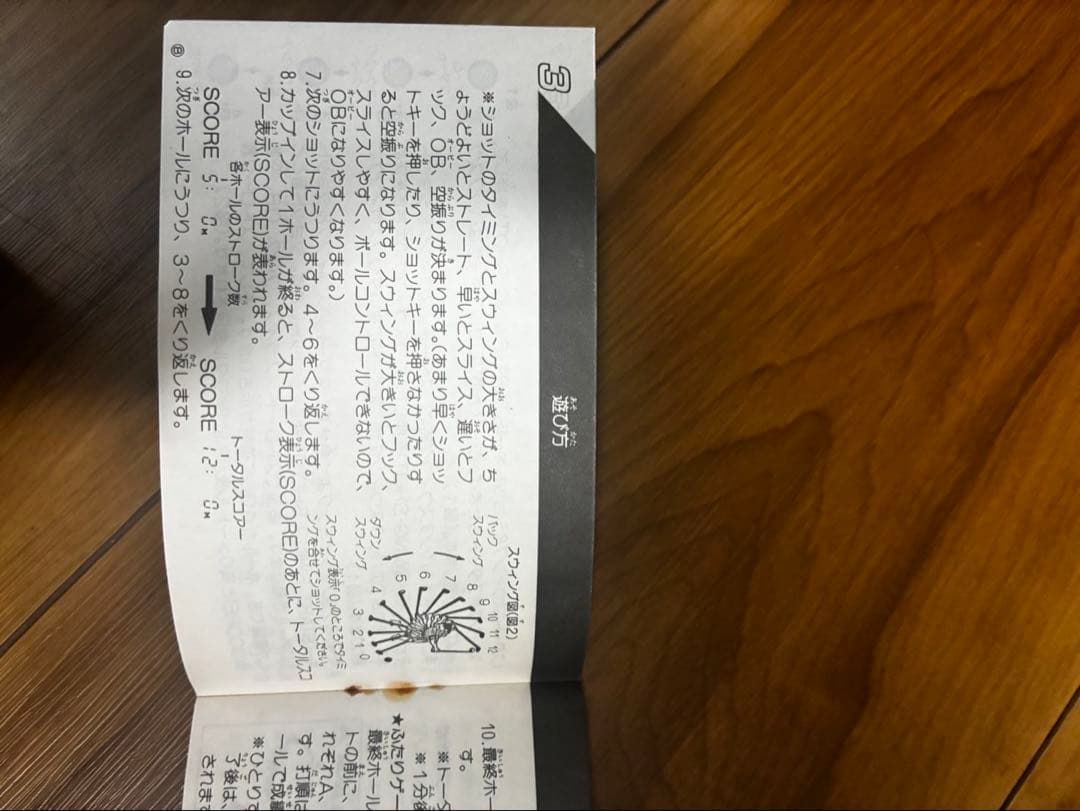 3
遊び方
※ショットのタイミングとスウィングの大きさが、ち
ょうどよいとストレート、早いとスライス、遅いとフ
ック、OB、空振りが決まります。(あまり早くショッ
トキーを押したり、ショットキーを押さなかったりす
ると空振りになります。スウィングが大きいとフック、
スライスしやすく、ボールコントロールできないので、
OBになりやすくなります。)
7.次のショットにうつります。4～6をくり返します。
8.カップインして1ホールが終ると、ストローク表示(SCORE)のあとに、トータルスコ
アー表示(SCORE)が表われます。
各ホールのストローク数
トータルスコアー
SCORE 5: 0M
SCORE 12: 0M
9.次のホールにうつり、3～8をくり返します。
⑧
スウィング図(図2)
バック
スウィング
7 8 9 10 11 12
6
5
ダウン
スウィング
4 3 2 1 0
スウィング表示「0」のところでタイミ
ングを合せてショットしてください。
10.最終ホー
す。
※トータ
※1分後
★ふたりゲー
最終ホール
トの前に、
れぞれA、
す。打順は
ールで成績
※ひとりす
了後は、
されま